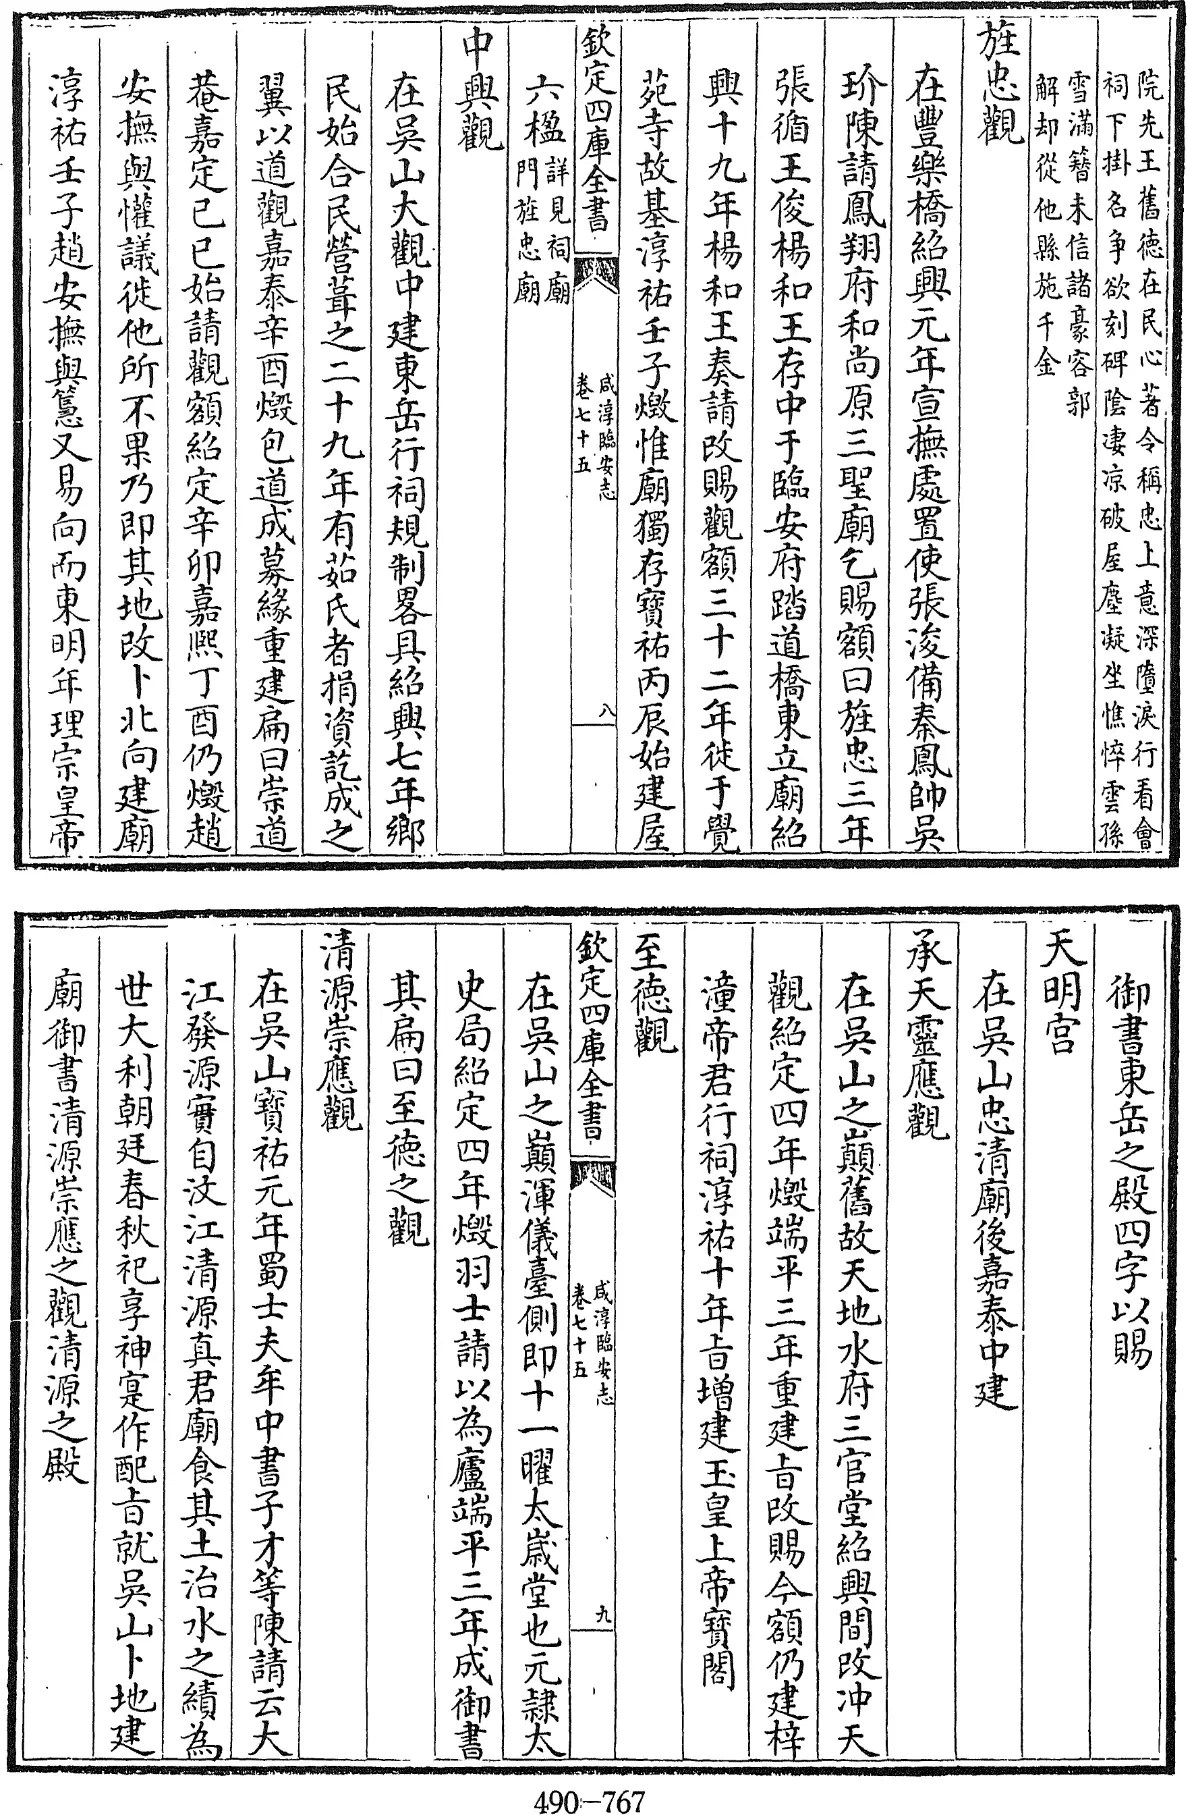 院先王舊徳在民心著令稱忠上意深墮淚行看會
祠下掛名争欲刻碑陰凄凉破屋塵凝坐憔悴雲孫
雪滿簪未信諸豪容郭
解却從他縣施千金
旌忠觀
在豐樂橋紹興元年宣撫處置使張浚備秦鳳帥吳
玠陳請鳳翔府和尚原三聖廟乞賜額曰旌忠三年
張循王俊楊和王存中于臨安府踏道橋東立廟紹
興十九年楊和王奏請改賜觀額三十二年徙于覺
苑寺故基淳祐壬子燬惟廟獨存寶祐丙辰始建屋
欽定四庫全書
咸淳臨安志
卷七十五
八
六楹詳見祠廟
門旌忠廟
中興觀
在吳山大觀中建東岳行祠規制畧具紹興七年鄉
民始合民營葺之二十九年有茹氏者捐資訖成之
翼以道觀嘉泰辛酉燬包道成募緣重建扁曰崇道
菴嘉定己巳始請觀額紹定辛卯嘉熙丁酉仍燬趙
安撫與懽議徙他所不果乃即其地改卜北向建廟
淳祐壬子趙安撫與𥲅又易向而東明年理宗皇帝
御書東岳之殿四字以賜
天明宫
在吳山忠清廟後嘉泰中建
承天靈應觀
在吳山之巔舊故天地水府三官堂紹興間改冲天
觀紹定四年燬端平三年重建㫖改賜今額仍建梓
潼帝君行祠淳祐十年㫖增建玉皇上帝寶閣
至徳觀
欽定四庫全書
咸淳臨安志
卷七十五
九
在吳山之巔渾儀臺側即十一曜太嵗堂也元隷太
史局紹定四年燬羽士請以為廬端平三年成御書
其扁曰至徳之觀
清源崇應觀
在吳山寶祐元年蜀士夫牟中書子才等陳請云大
江發源實自汶江清源真君廟食其土治水之績為
世大利朝廷春秋祀享神寔作配㫖就吳山卜地建
廟御書清源崇應之觀清源之殿
490-767